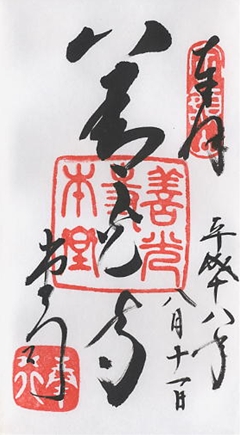 奉拝
定額山
平成十八年
八月十一日
善光寺
善光
本堂